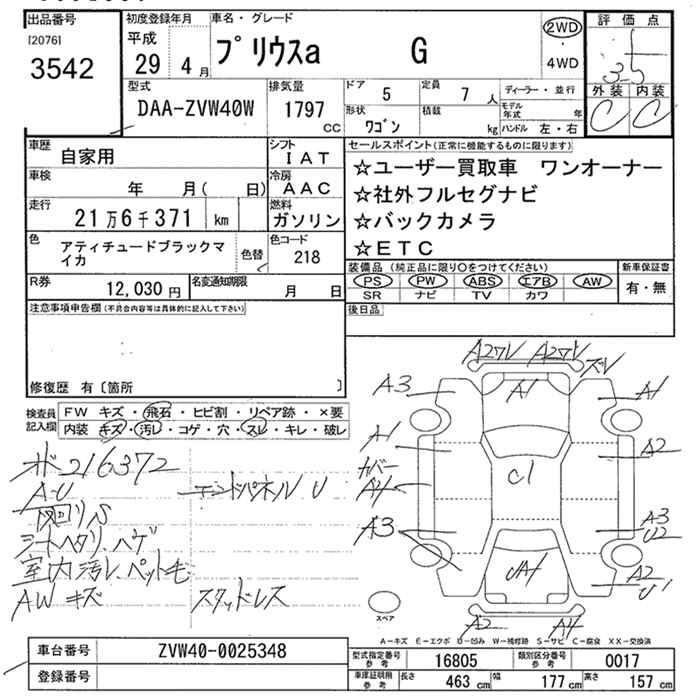 出品番号
[2076]
3542
初度登録年月
平成
29 4月
車名・グレード
プリウスa G
2WD
・
4WD
評価点
3.5
外装 内装
C C
型式
DAA-ZVW40W
排気量
1797
CC
ドア 5
定員 7 人
形状 ワゴン
積載 kg
ディーラー・並行
モデル年式 年
ハンドル 左・右
車歴 自家用
シフト IAT
車検 年 月( 日)
冷房 AAC
走行 21万6千371 km
燃料 ガソリン
色 アティチュードブラックマイカ
色替
色コード 218
R券 12,030 円
名変通知期限 月 日
セールスポイント(正常に機能するものに限ります)
☆ユーザー買取車 ワンオーナー
☆社外フルセグナビ
☆バックカメラ
☆ETC
装備品 (純正品に限り○をつけてください)
PS PW ABS エアB AW
SR ナビ TV カワ
新車保証書
有・無
後日品
注意事項申告欄(不具合内容等は具体的に記入して下さい)
修復歴 有〔箇所 〕
検査員記入欄
FW キズ・飛石・ヒビ割・リペア跡・×要
内装 キズ・汚レ・コゲ・穴・スレ・キレ・破レ
216372
A-U
エンドパネル U
下回りS
シートヘタリ、ハゲ
室内汚レ、ペット毛
AW キズ
スタッドレス
A2ワレ A2ワレ
ズレ
A3 A1 A1
A1 A2
カバー
A4 C1
A3 A3
U2
A1 A2
U1
A2 A4
スペア
A-キズ E-エクボ U-凹み W-補修跡 S-サビ C-腐食 XX-交換済
車台番号 ZVW40-0025348
登録番号
型式指定番号 参考 16805
類別区分番号 参考 0017
車庫証明用 参考
長さ 463 cm
幅 177 cm
高さ 157 cm